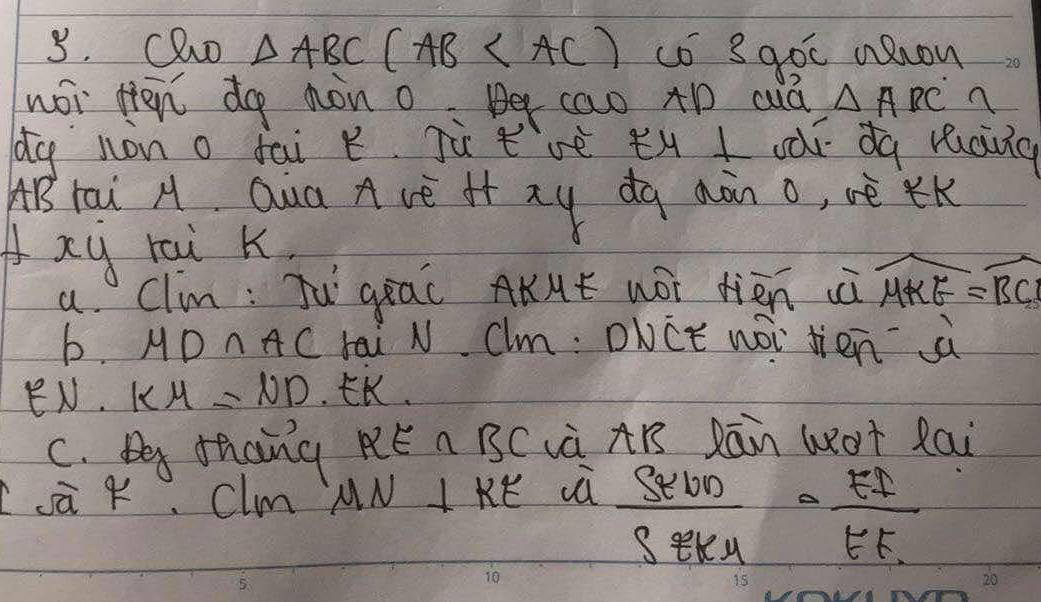 3. Cho △ABC (AB < AC) có 3 góc nhọn
nội tiếp đg tròn O. Đg cao AD của △ABC ∩
đg tròn O tại E. Từ E vẽ EM ⊥ với đg thẳng
AB tại M. Qua A vẽ tt xy đg tròn O, vẽ EK
⊥ xy tại K.
a. Clm: Tứ giác AKME nội tiếp và MKE = BCE
b. MD ∩ AC tại N. Clm: DNCE nội tiếp và
EN. KM = ND. EK.
c. Đg thẳng KE ∩ BC và AB lần lượt tại
I và F. Clm MN ⊥ KE và SEND / SEKM = EI / EF.
5 10 15 20
20
KOKUYO